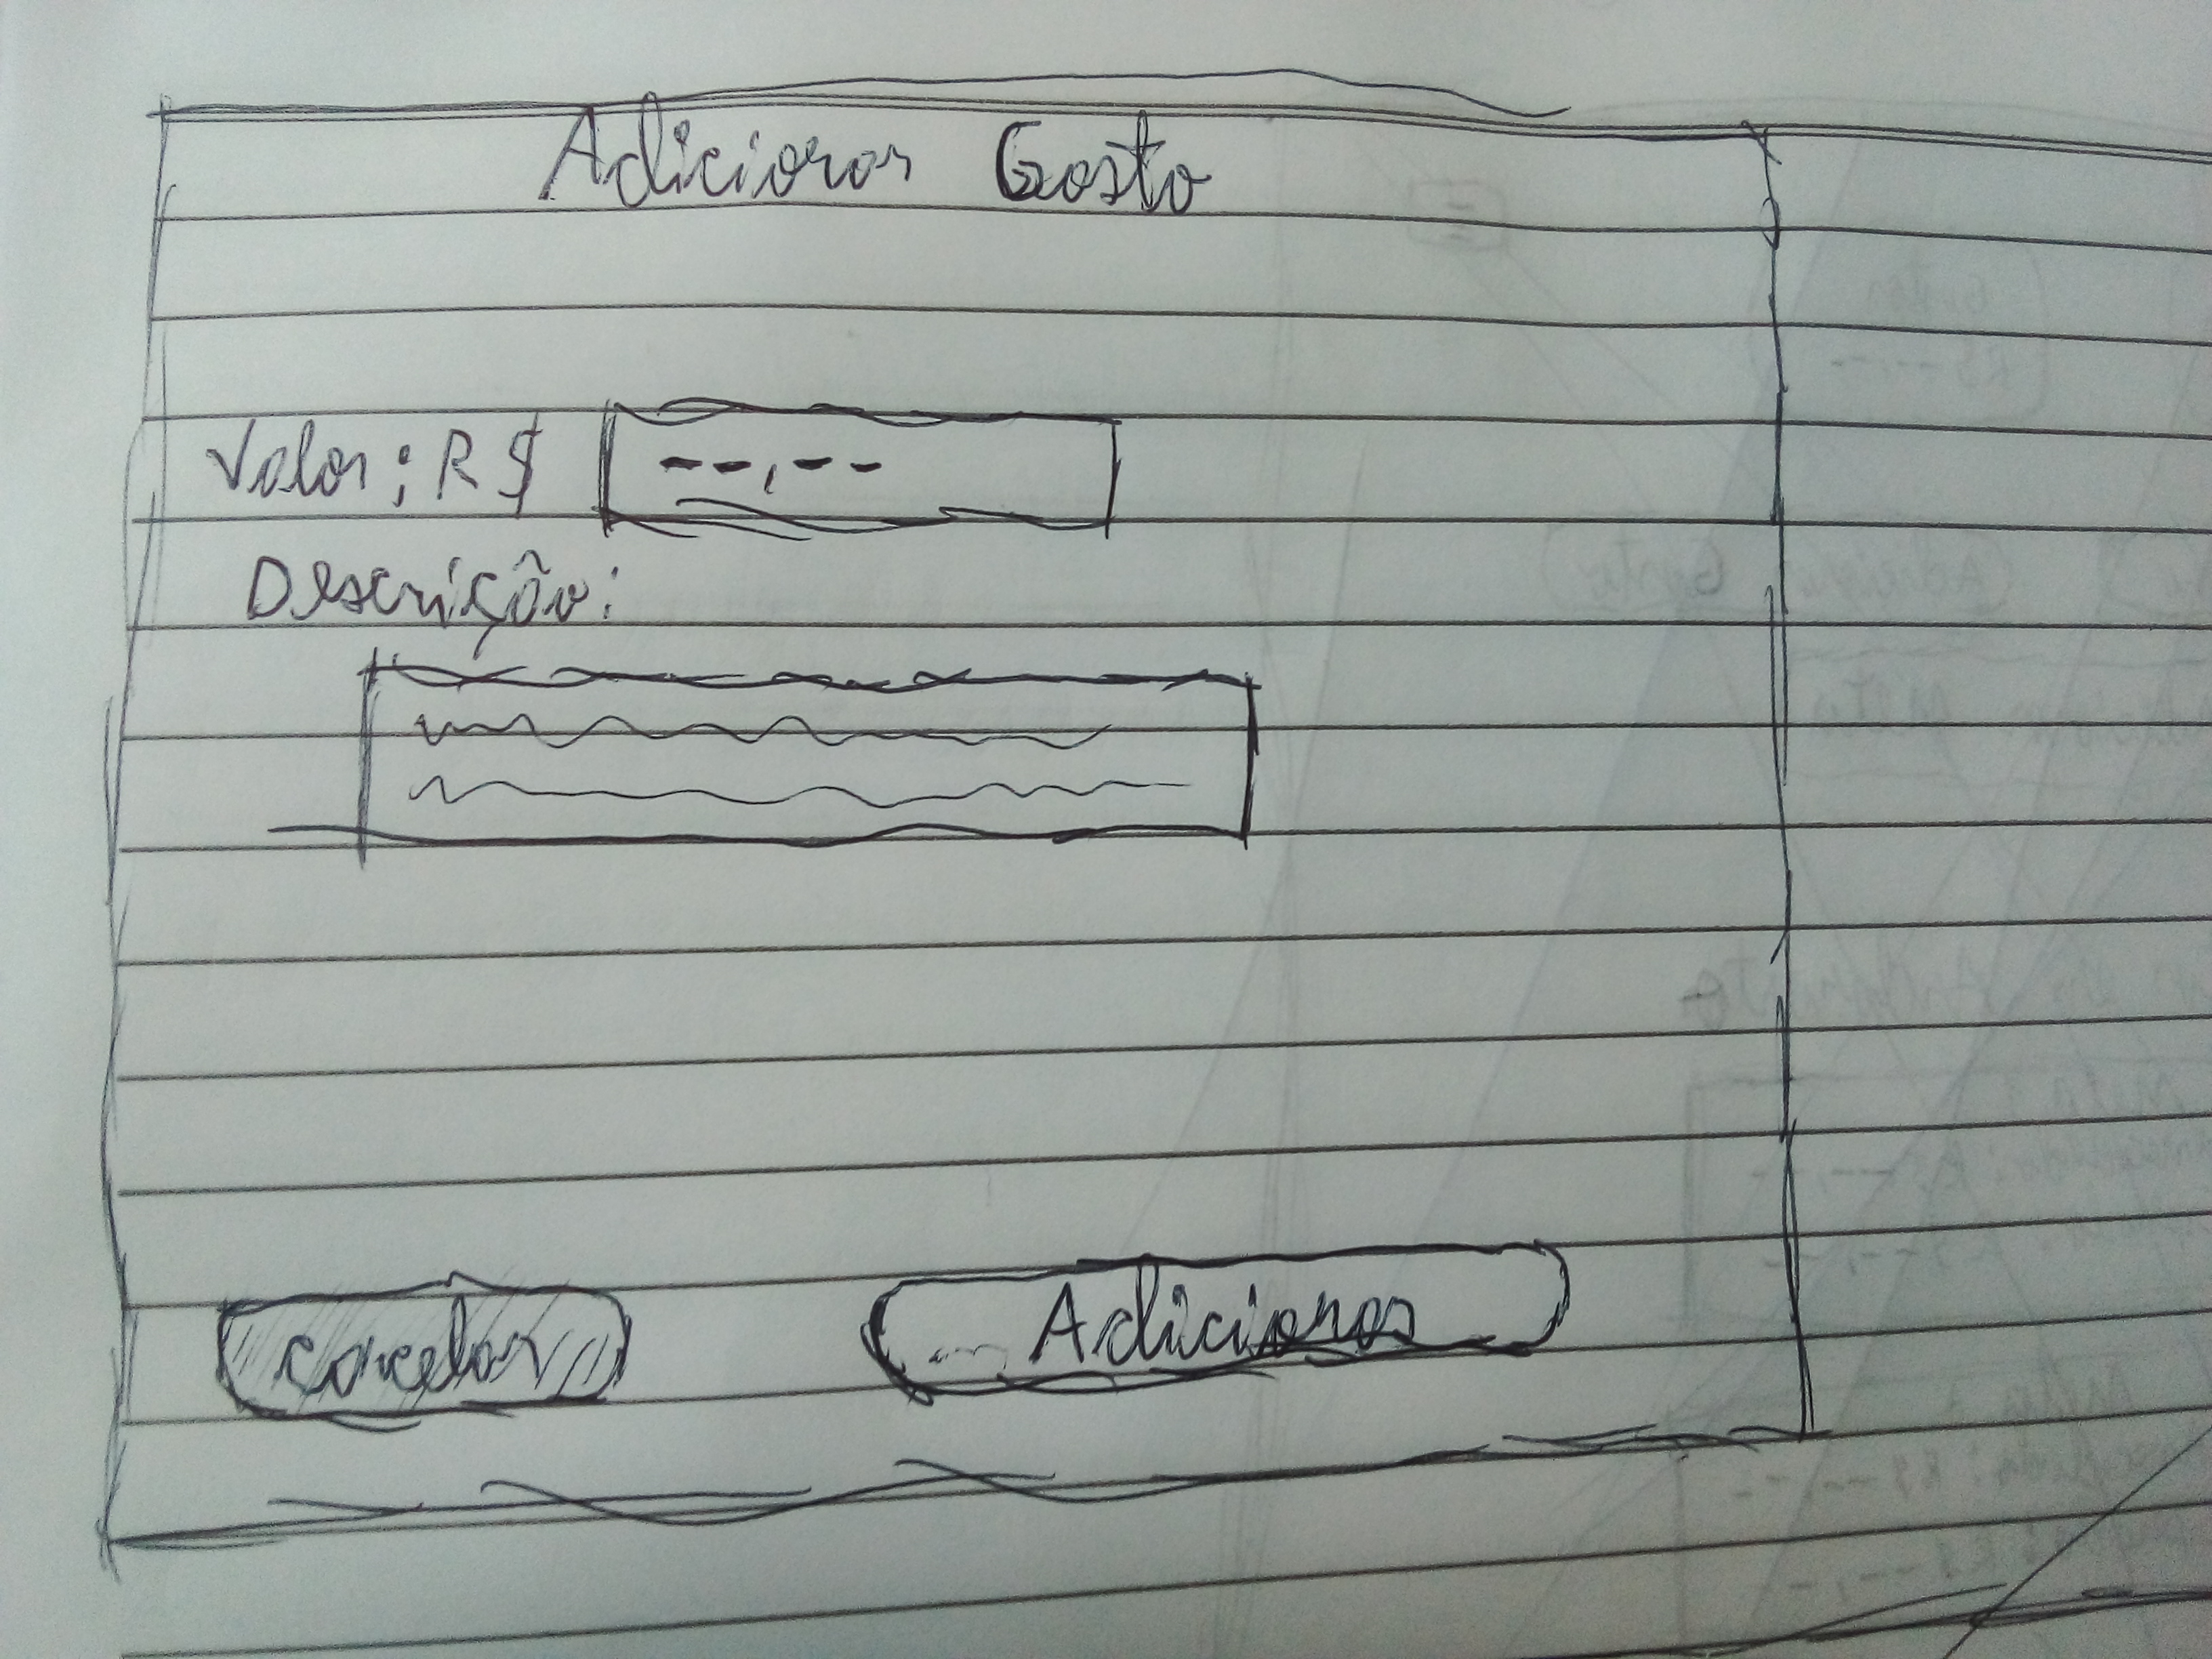 Adicionar Gasto
Valor: R$ --,--
Descrição:
cancelar
Adicionar